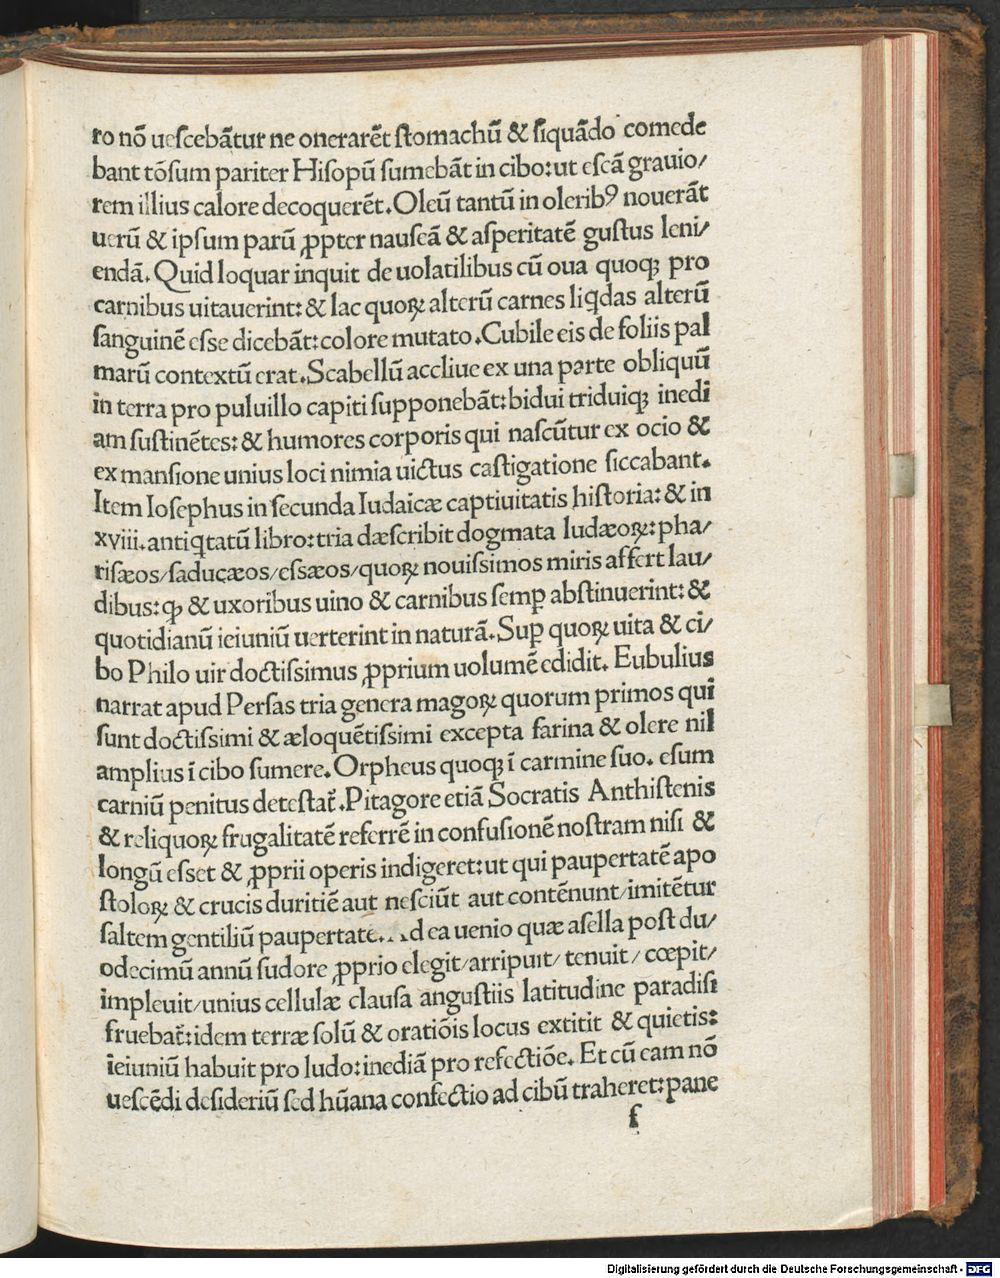 ro nõ ueſcebãtur ne onerarẽt ſtomachũ & ſiquãdo comede
bant tõſum pariter Hiſopũ ſumebãt in cibo: ut eſcã grauio/
rem illius calore decoquerẽt. Oleũ tantũ in olerib⁹ nouerãt
uerũ & ipſum parũ ꝓpter nauſeã & aſperitatẽ guſtus leni/
endã. Quid loquar inquit de uolatilibus cũ oua quoqꝫ pro
carnibus uitauerint: & lac quoꝝ alterũ carnes liꝗdas alterũ
ſanguinẽ eſse dicebãt: colore mutato. Cubile eis de foliis pal
marũ contextũ erat. Scabellũ accliue ex una parte obliquũ
in terra pro puluillo capiti ſupponebãt: bidui triduiqꝫ inedi
am ſuſtinẽtes: & humores corporis qui naſcũtur ex ocio &
ex manſione unius loci nimia uictus caſtigatione ſiccabant.
Item Ioſephus in ſecunda Iudaicæ captiuitatis hiſtoria: & in
xviii. antiꝗtatũ libro: tria dæſcribit dogmata Iudæoꝝ: pha/
riſæos/ſaducæos/eſsæos/quoꝝ nouiſsimos miris affert lau/
dibus: ꝙ & uxoribus uino & carnibus ſemꝑ abſtinuerint: &
quotidianũ ieiuniũ uerterint in naturã. Suꝑ quoꝝ uita & ci/
bo Philo uir doctiſsimus ꝓprium uolumẽ edidit. Eubulius
narrat apud Perſas tria genera magoꝝ quorum primos qui
ſunt doctiſsimi & æloquẽtiſsimi excepta farina & olere nil
amplius ĩ cibo ſumere. Orpheus quoqꝫ ĩ carmine ſuo. eſum
carniũ penitus deteſtat᷑. Pitagore etiã Socratis Anthiſtenis
& reliquoꝝ frugalitatẽ referrẽ in confuſionẽ noſtram niſi &
longũ eſset & ꝓprii operis indigeret: ut qui paupertatẽ apo
ſtoloꝝ & crucis duritiẽ aut neſciũt aut contẽnunt/imitẽtur
ſaltem gentiliũ paupertatẽ. Ad ea uenio quæ aſella poſt du/
odecimũ annũ ſudore ꝓprio elegit/arripuit/ tenuit/ cœpit/
impleuit/unius cellulæ clauſa anguſtiis latitudine paradiſi
fruebat᷑: idem terræ ſolũ & oratiõis locus extitit & quietis:
ieiuniũ habuit pro ludo: inediã pro refectiõe. Et cũ eam nõ
ueſcẽdi deſideriũ ſed hũana confectio ad cibũ traheret: pane
f
Digitalisierung gefördert durch die Deutsche Forschungsgemeinschaft - DFG